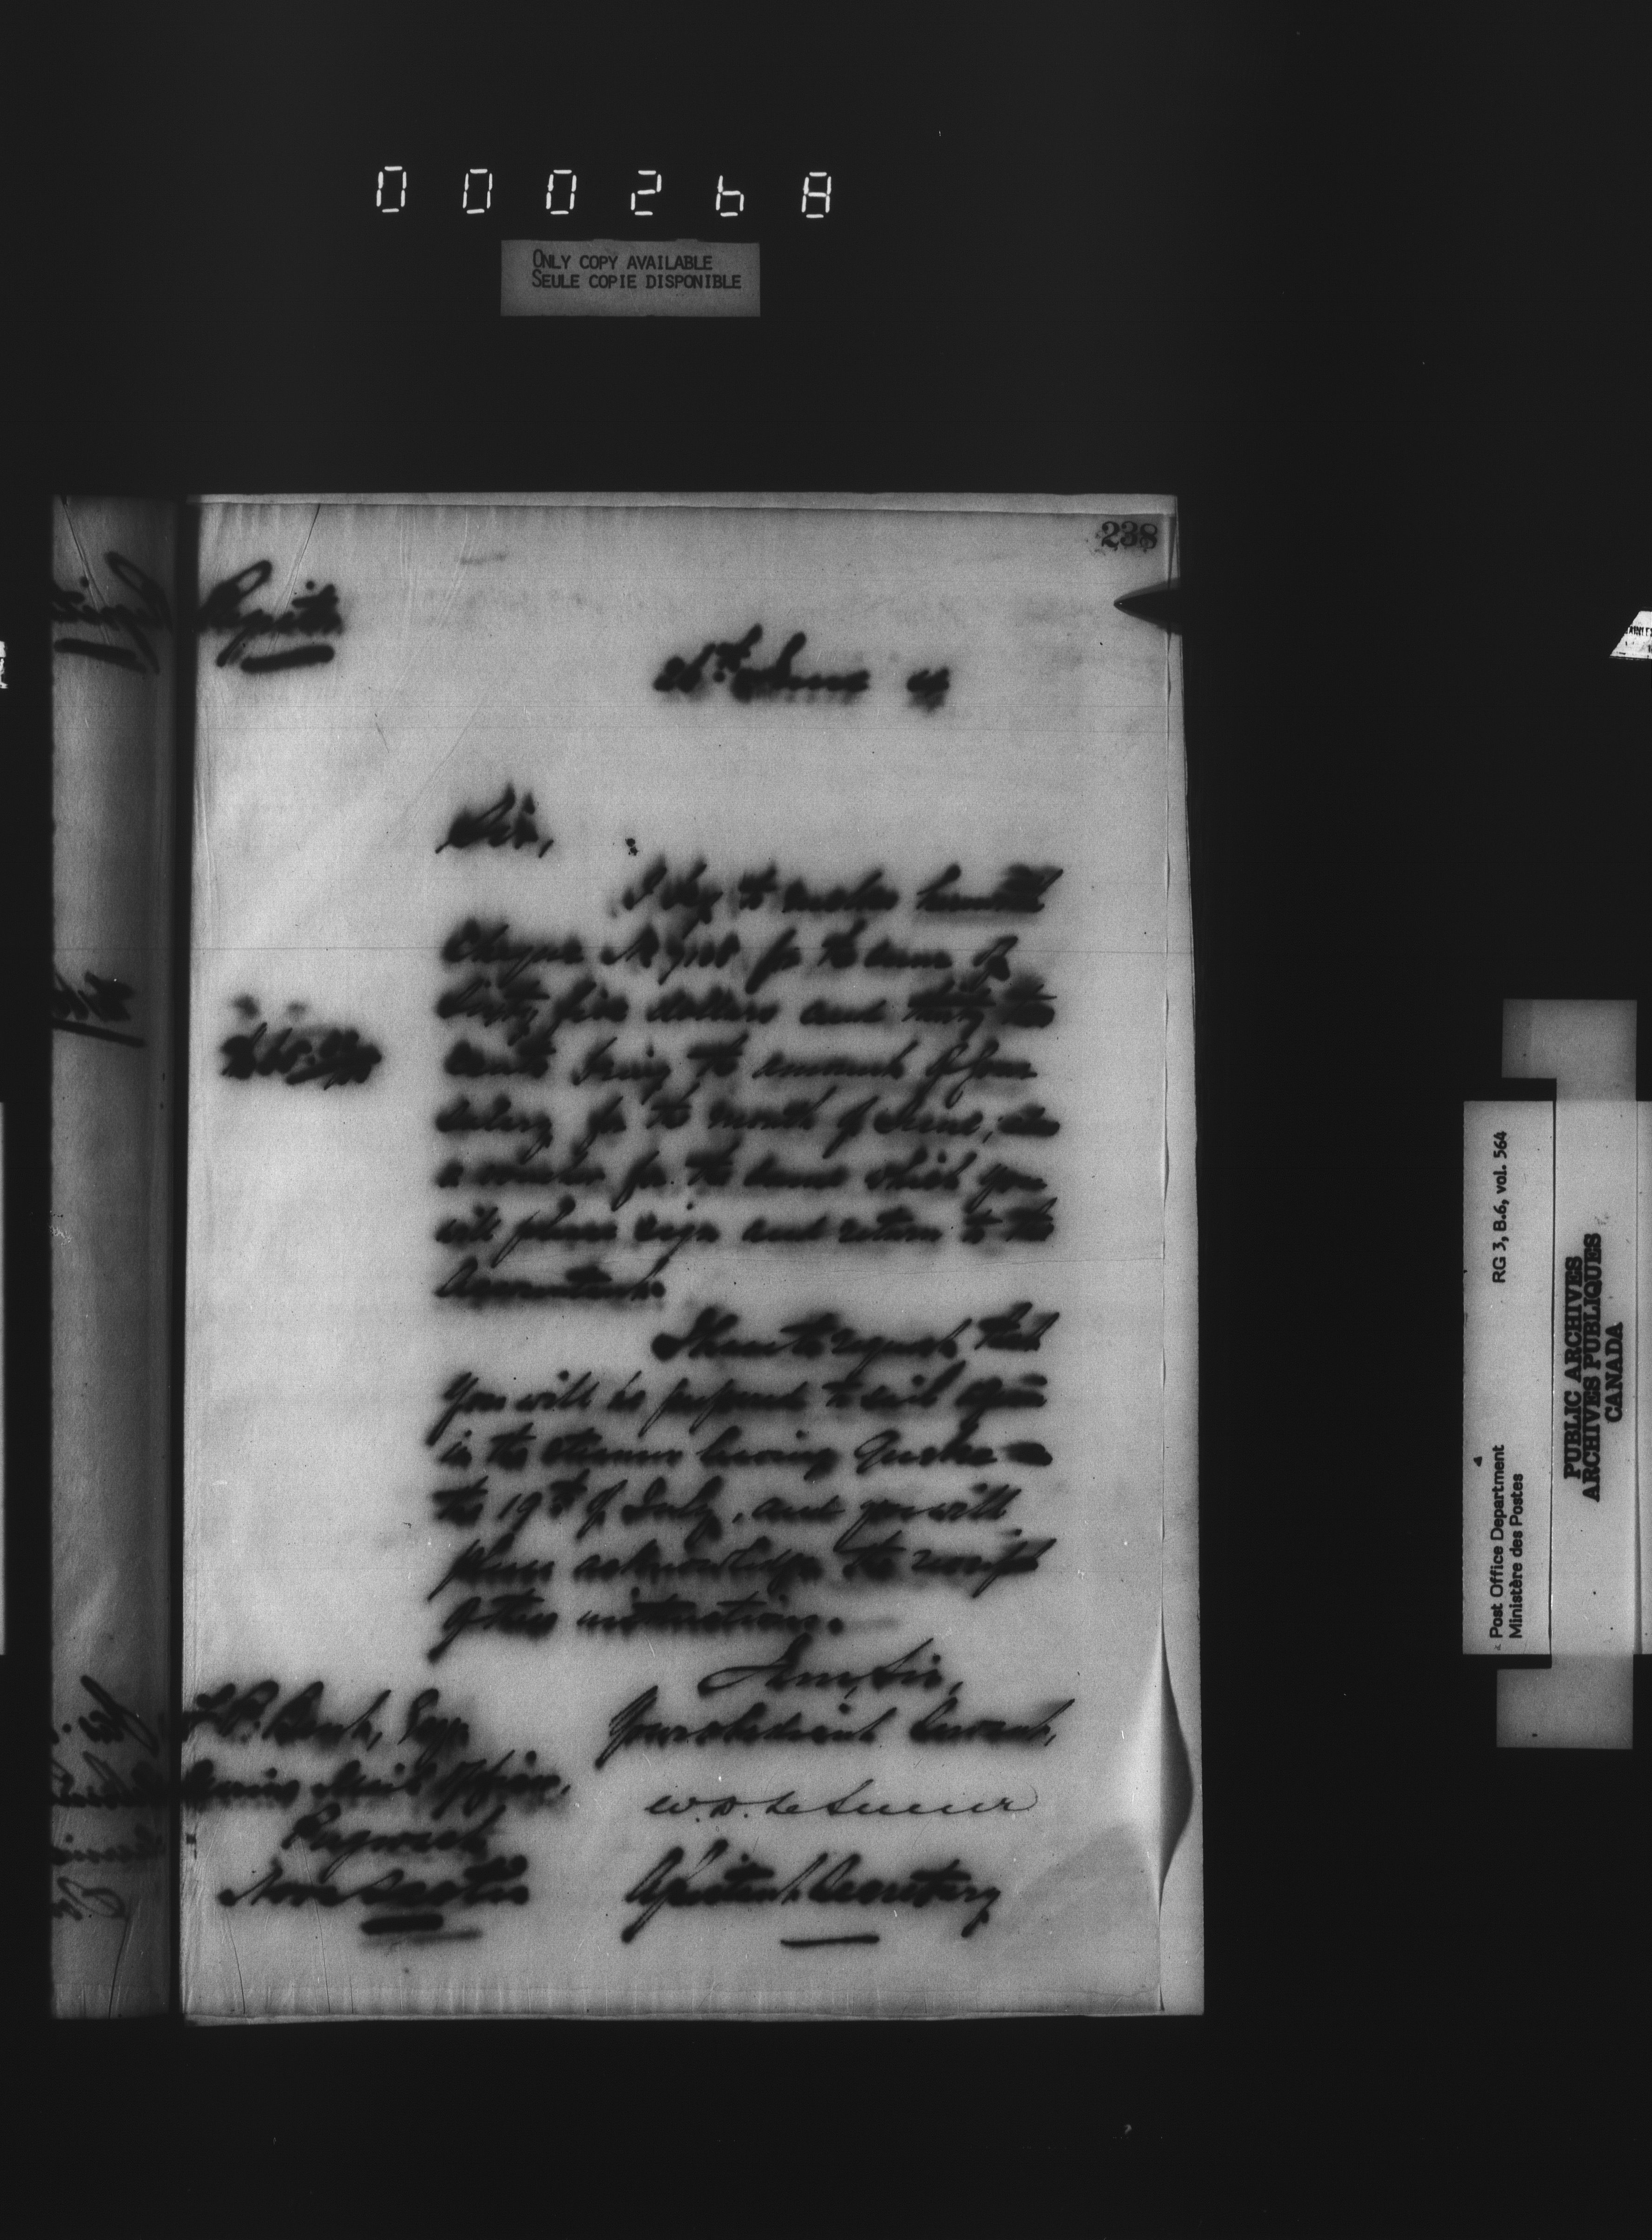 000268
ONLY COPY AVAILABLE
SEULE COPIE DISPONIBLE
238
26th June
Sir,
I beg to enclose herewith
Cheque No for the sum of
Sixty five dollars and thirty two
cents being the amount of your
salary for the month of June, also
a voucher for the same which you
will please sign and return to the
Accountant.
I have to request that
you will be prepared to sail again
in the steamer leaving Quebec on
the 19th of July, and you will
please acknowledge the receipt
of these instructions.
I am, Sir,
Your obedient Servant,
W. D. LeSueur
Assistant Secretary
Esqr
Marine Mail Officer,
Pugwash
Nova Scotia
Post Office Department
Ministère des Postes
RG 3, B.6, vol. 564
PUBLIC ARCHIVES
ARCHIVES PUBLIQUES
CANADA